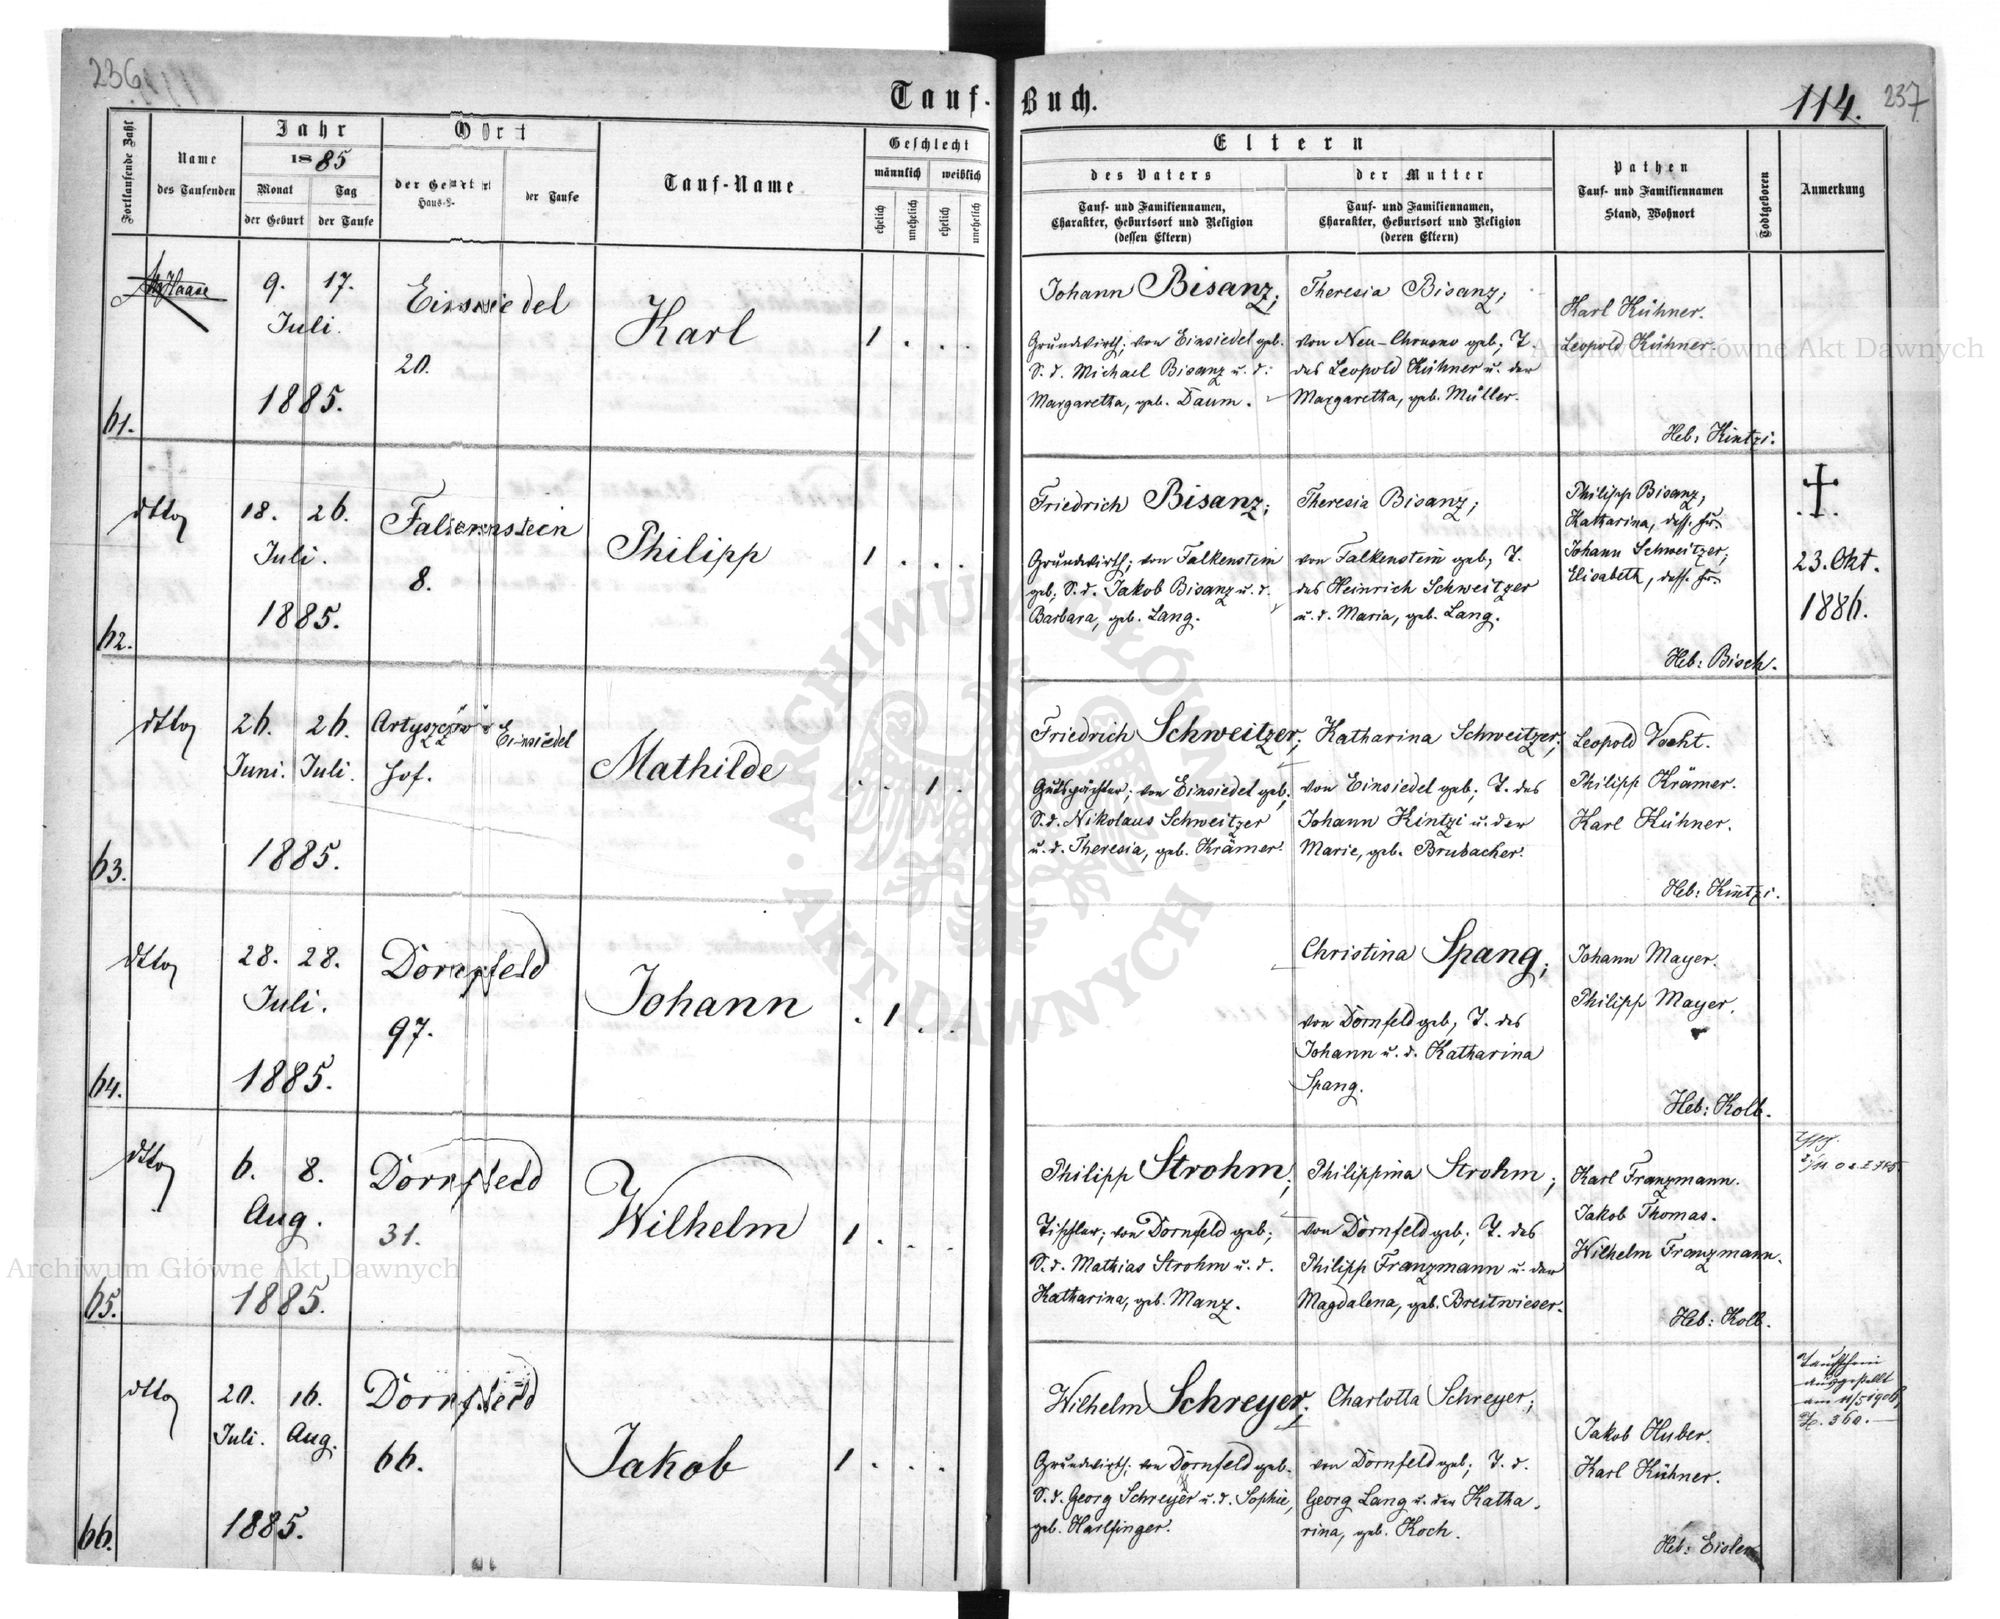 236
Tauf-Buch.
114. 237
Fortlaufende Zahl
Name
des Taufenden
Jahr
1885
Monat
Tag
der Geburt
der Taufe
Ort
der Geburt
Haus-
der Taufe
Tauf-Name
Geschlecht
männlich
weiblich
ehelich
unehelich
ehelich
unehelich
Eltern
des Vaters
Tauf- und Familiennamen,
Charakter, Geburtsort und Religion
(dessen Eltern)
der Mutter
Tauf- und Familiennamen,
Charakter, Geburtsort und Religion
(deren Eltern)
Pathen
Tauf- und Familiennamen
Stand, Wohnort
Todtgeboren
Anmerkung
61.
Haase
9. 17.
Juli.
1885.
Einsiedel
20.
Karl
1 . . .
Johann Bisanz;
Grundwirth; von Einsiedel geb.
S. d. Michael Bisanz u. d.
Margaretha, geb. Daum.
Theresia Bisanz;
von Neu-Chrusno geb; T.
des Leopold Kühner u. der
Margaretha, geb. Müller.
Karl Kühner.
Leopold Kühner.
Heb: Kintzi.
62.
dtto
18. 26.
Juli.
1885.
Falkenstein
8.
Philipp
1 . . .
Friedrich Bisanz;
Grundwirth; von Falkenstein
geb; S. d. Jakob Bisanz u. d.
Barbara, geb. Lang.
Theresia Bisanz;
von Falkenstein geb; T.
des Heinrich Schweitzer
u. d. Maria, geb. Lang.
Philipp Bisanz,
Katharina, dess. Fr.
Johann Schweitzer;
Elisabeth, dess. Fr.
Heb: Bisch.
23. Okt.
1886.
63.
dtto
26. 26.
Juni. Juli.
1885.
Artyszczów
Hof.
Einsiedel
Mathilde
. . 1 .
Friedrich Schweitzer;
Gutspächter; von Einsiedel geb;
S. d. Nikolaus Schweitzer
u. d. Theresia, geb. Krämer.
Katharina Schweitzer;
von Einsiedel geb; T. des
Johann Kintzi u. der
Marie, geb. Brubacher.
Leopold Vocht.
Philipp Krämer.
Karl Kühner.
Heb: Kintzi.
64.
dtto
28. 28.
Juli.
1885.
Dornfeld
97.
Johann
. 1 . .
Christina Spang;
von Dornfeld geb; T. des
Johann u. d. Katharina
Spang.
Johann Mayer.
Philipp Mayer.
Heb: Kolb.
65.
dtto
6. 8.
Aug.
1885.
Dornfeld
31.
Wilhelm
1 . . .
Philipp Strohm;
Tischler; von Dornfeld geb;
S. d. Mathias Strohm u. d.
Katharina, geb. Manz.
Philippina Strohm;
von Dornfeld geb; T. des
Philipp Franzmann u. der
Magdalena, geb. Breitwieser.
Karl Franzmann.
Jakob Thomas.
Wilhelm Franzmann.
Heb: Kolb.
66.
dtto
20. 16.
Juli. Aug.
1885.
Dornfeld
66.
Jakob
1 . . .
Wilhelm Schreyer;
Grundwirth; von Dornfeld geb.
S. d. Georg Schreyer u. d. Sophie,
geb. Harlfinger.
Charlotta Schreyer;
von Dornfeld geb; T. d.
Georg Lang u. der Katha-
rina, geb. Koch.
Jakob Huber.
Karl Kühner.
Heb: Eisler
Taufschein
ausgestellt
am 11/5 1908
Z. 360.
Archiwum Główne Akt Dawnych
Archiwum Główne Akt Dawnych
ARCHIWUM GŁÓWNE AKT DAWNYCH